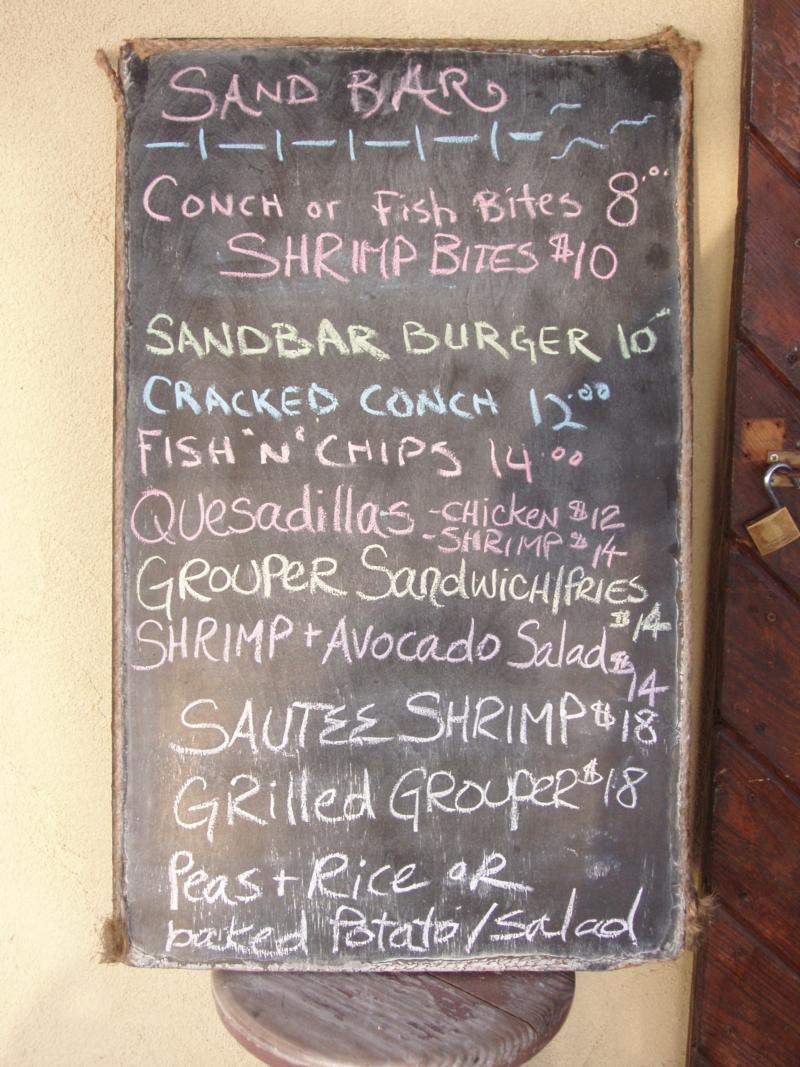 SAND BAR
CONCH or Fish Bites 8.00
SHRIMP BITES $10
SANDBAR BURGER 10
CRACKED CONCH 12.00
FISH "N" CHIPS 14.00
QUesadillas -CHICKEN $12
-SHRIMP $14
GROUPER SandwicH/fRIES
$14
SHRIMP + Avocado Salad $14
SAUTEE SHRIMP $18
GRilled GROUPER $18
Peas + Rice oR
baked Potato/Salad